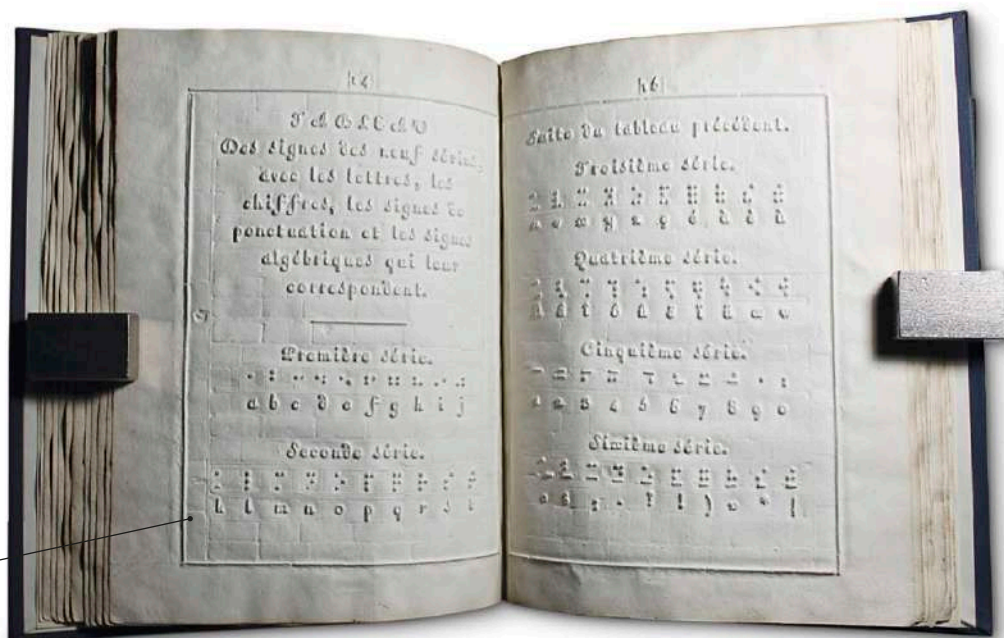 14
TABLEAU
Des signes des neuf séries,
avec les lettres, les
chiffres, les signes de
ponctuation et les signes
algébriques qui leur
correspondent.
Première série.
⠁ ⠃ ⠉ ⠙ ⠑ ⠋ ⠛ ⠓ ⠊ ⠚
a b c d e f g h i j
Seconde série.
⠅ ⠇ ⠍ ⠝ ⠕ ⠏ ⠟ ⠗ ⠎ ⠞
k l m n o p q r s t
16
Suite du tableau précédent.
Troisième série.
u v x y z ç é à è ù
Quatrième série.
â ê î ô û ë ï ü œ w
Cinquième série.
1 2 3 4 5 6 7 8 9 0
Sixième série.